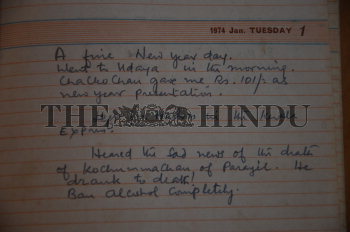 1974 Jan. TUESDAY 1
A fine New year day.
Went to Udaya in the morning.
Chackochan gave me Rs. 101/= as
new year presentation.
THE HINDU
in the
Express.
Heared the sad news of the death
of Kochummachan of Parayil. He
drank to death!
Ban Alcohol Completely.